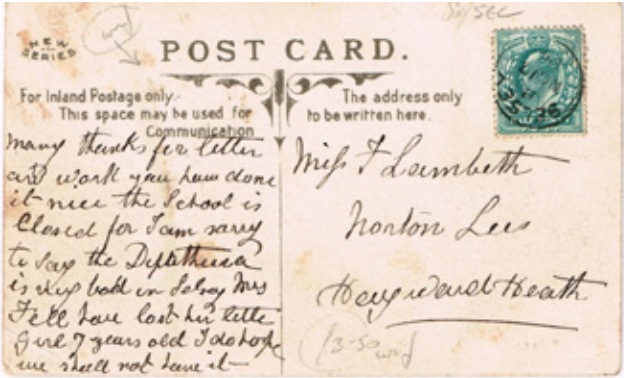 NEW
SERIES
wrf
Sy/SEL
POST CARD.
For Inland Postage only.
This space may be used for
Communication
The address only
to be written here.
Many thanks for letter
and work you have done
it nice the School is
Closed for I am sorry
to say the Diptheria
is very bad in Selsey Mrs
Fell have lost her little
girl 7 years old I do hope
we shall not have it
Miss F Lambeth
Norton Lees
Hayward Heath
13-50